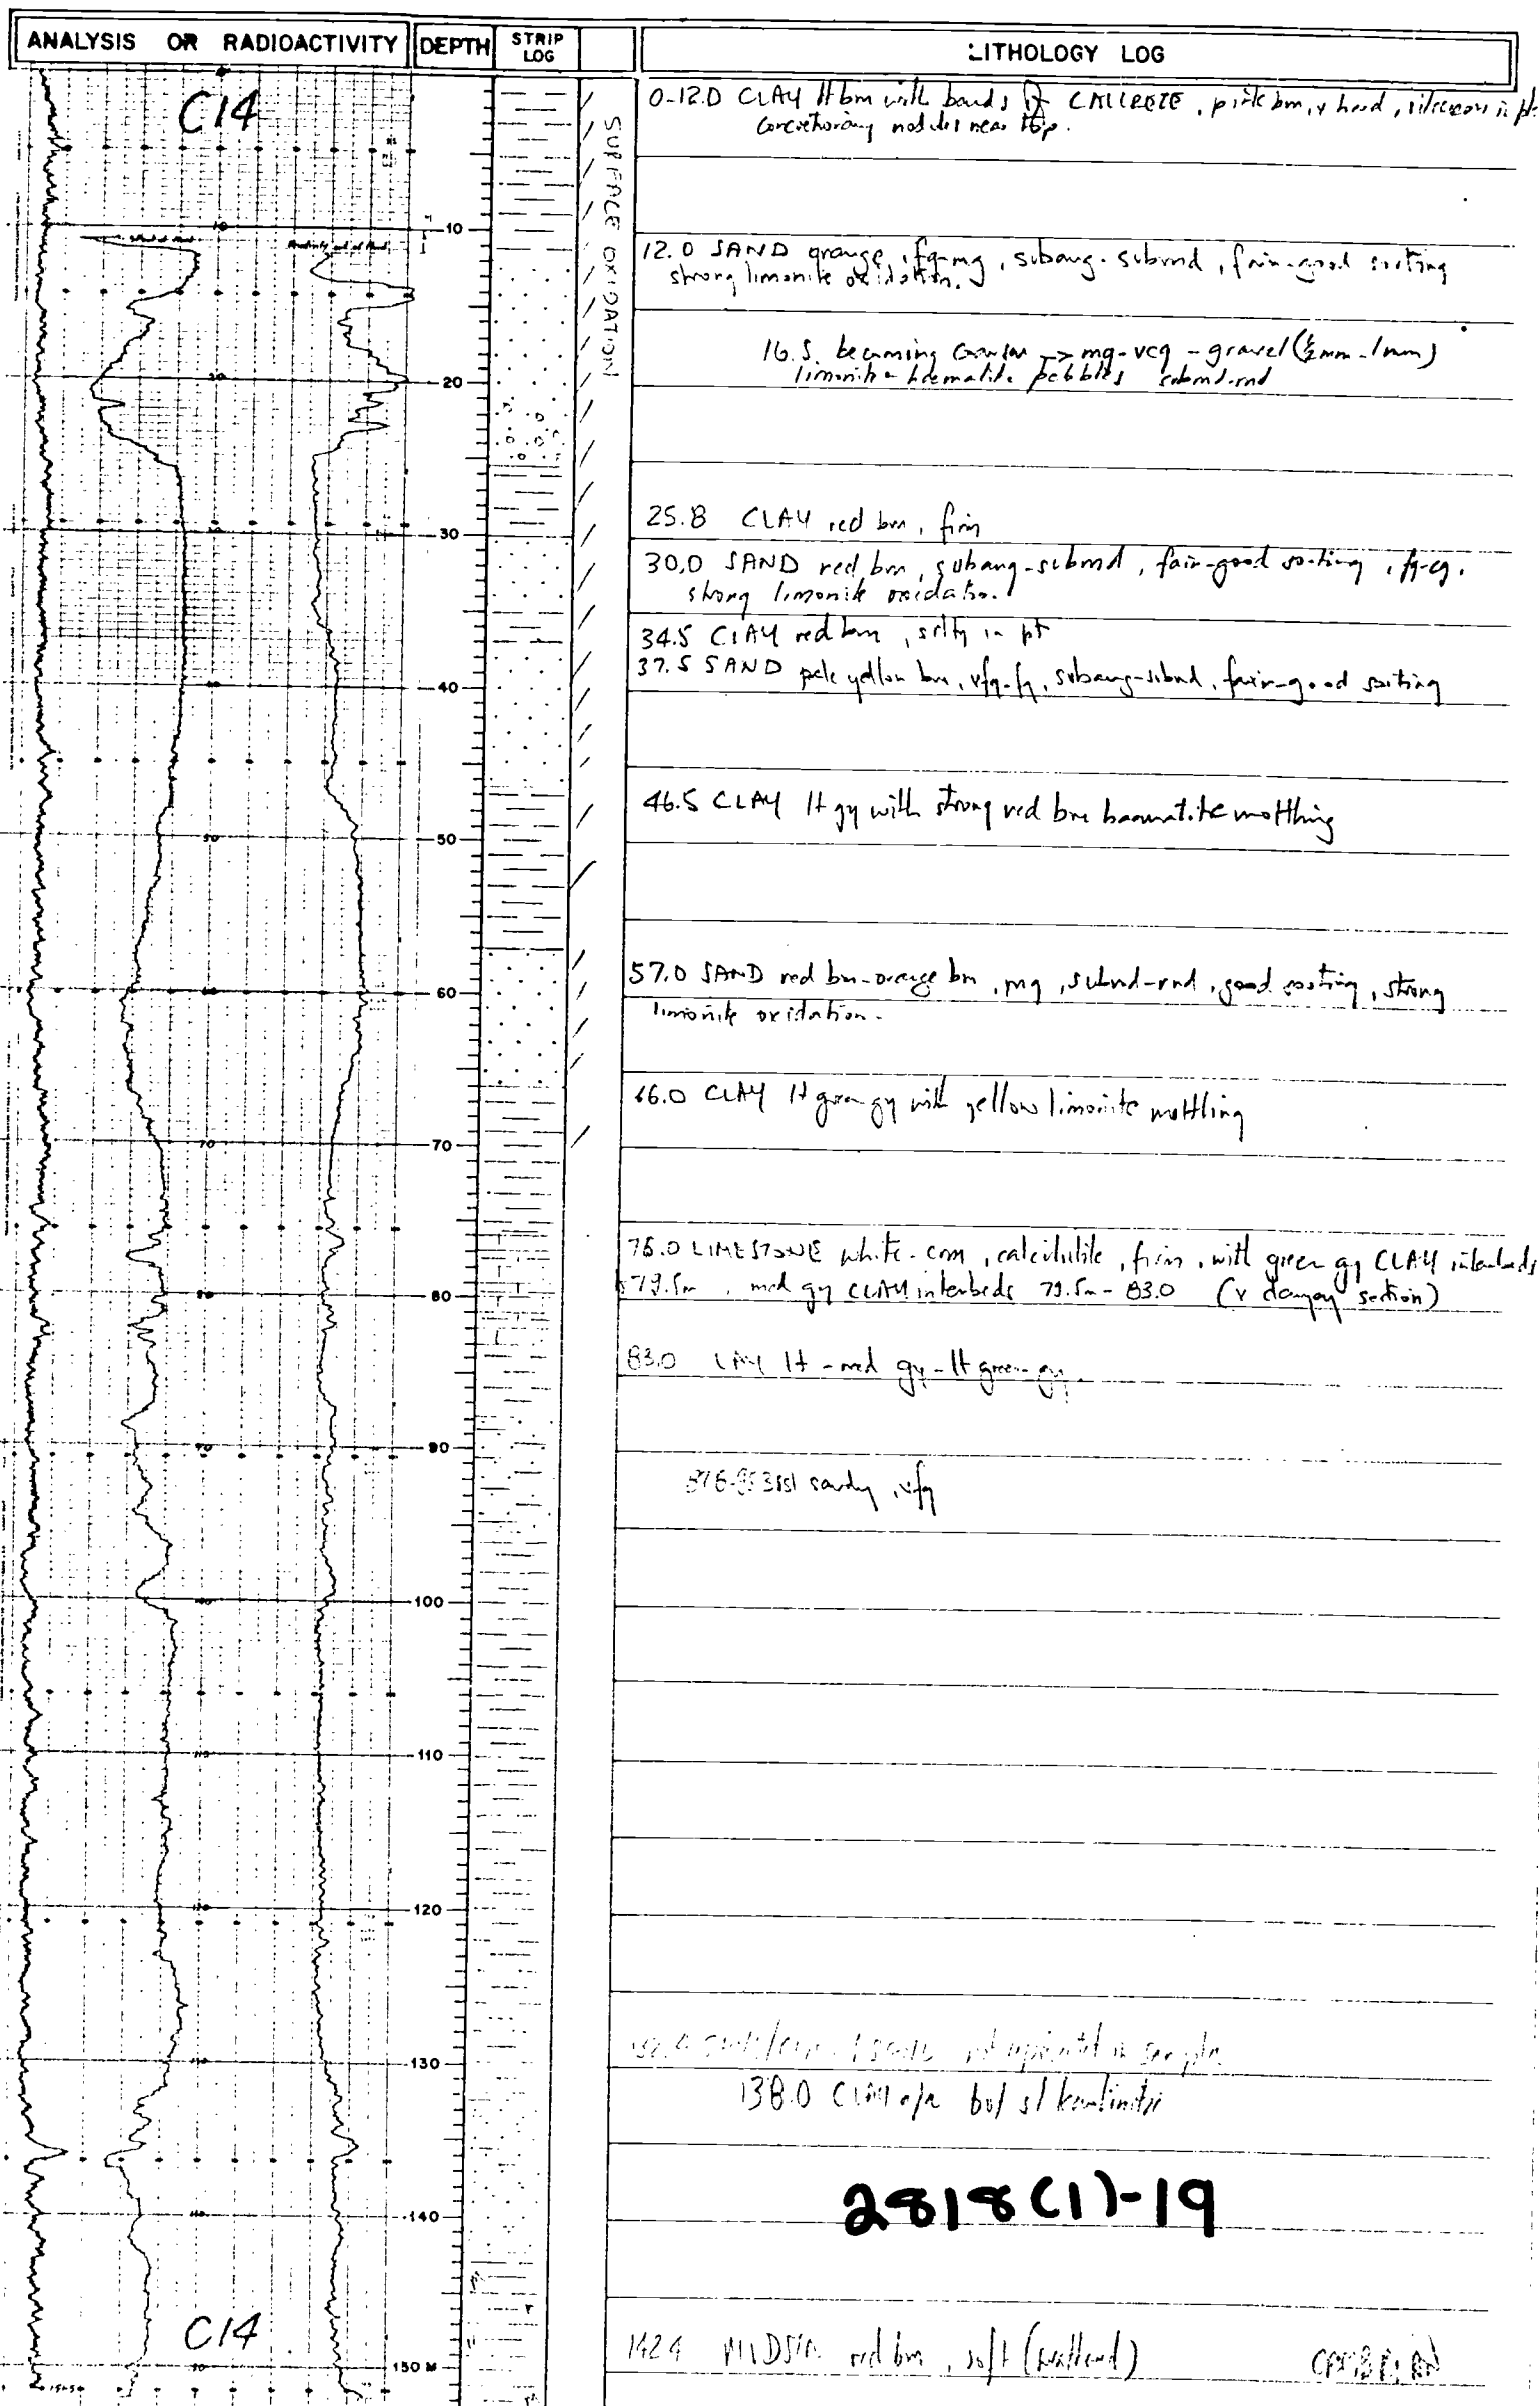 ANALYSIS OR RADIOACTIVITY DEPTH STRIP LOG LITHOLOGY LOG
C14
SURFACE OXIDATION
0-12.0 CLAY lt brn with bands of CALCRETE, pink brn, v hard, siliceous in pt.
concretionary nodules near top.
10
12.0 SAND orange, fg-mg, subang-subrnd, fair-good sorting
strong limonite oxidation.
16.5 becoming coarser -> mg-vcg - gravel (½mm-1mm)
limonite haematite pebbles subrnd-rnd
20
25.8 CLAY red brn, firm
30
30.0 SAND red brn, subang-subrnd, fair-good sorting, fg-cg.
strong limonite oxidation.
34.5 CLAY red brn, silty in pt
37.5 SAND pale yellow brn, vfg-fg, subang-subrnd, fair-good sorting
40
46.5 CLAY lt gy with strong red brn haematite mottling
50
57.0 SAND red brn-orange brn, mg, subrnd-rnd, good sorting, strong
60
limonite oxidation.
66.0 CLAY lt green gy with yellow limonite mottling
70
LIMESTONE white-crm, calcilutite, firm, with green gy CLAY interbeds
79.5m, med gy CLAY interbeds 79.5m-83.0 (v clayey section)
80
83.0 CLAY lt-med gy-lt green-gy
90
sandy, vfg
100
110
120
130
not in sample
138.0 CLAY a/a but sl kaolinitic
2818(1)-19
140
C14
142.4 MUDST. red brn, soft
150 M